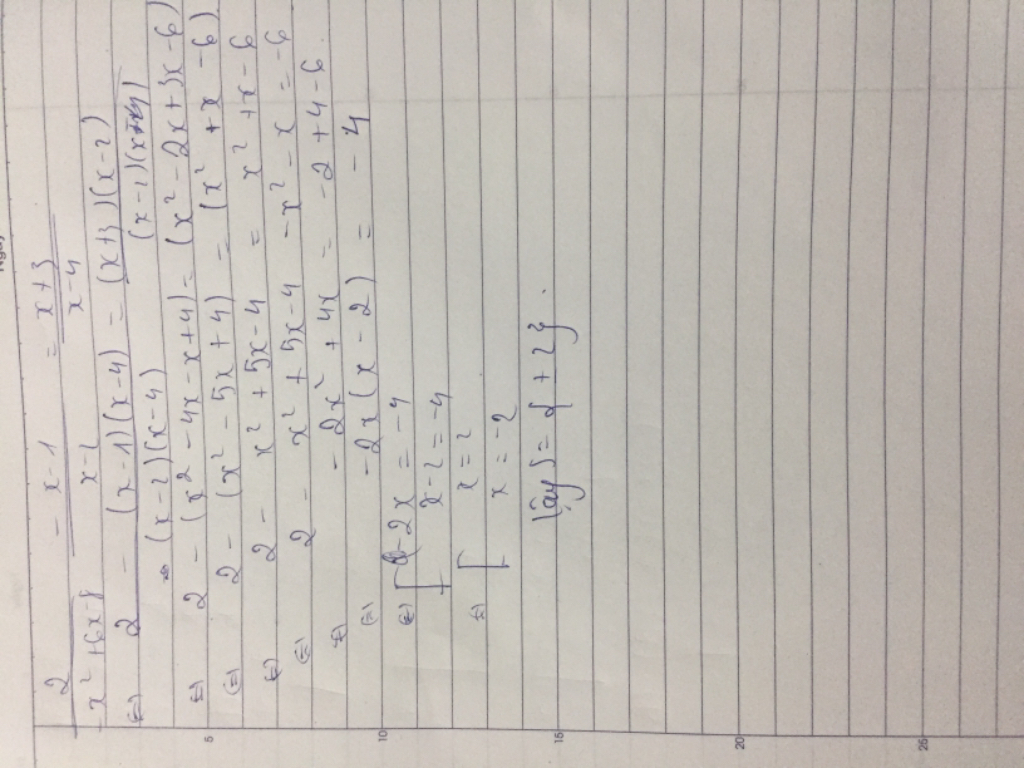 Ngày
2/(-x² + 6x - 8) - (x - 1)/(x - 2) = (x + 3)/(x - 4)
(=) 2 - (x - 1)(x - 4) = (x + 3)(x - 2)
(x - 2)(x - 4) (x - 2)
(=) 2 - (x² - 4x - x + 4) = (x² - 2x + 3x - 6)
(=) 2 - (x² - 5x + 4) = (x² + x - 6)
(=) 2 - x² + 5x - 4 = x² + x - 6
(=) 2 - x² + 5x - 4 - x² - x = -6
(=) - 2x² + 4x = -2 + 4 - 6
(=) -2x (x - 2) = -4
(=) [ -2x = -4
x - 2 = -4
(=) [ x = 2
x = -2
Vậy S = { ± 2 }.
5
10
15
20
25